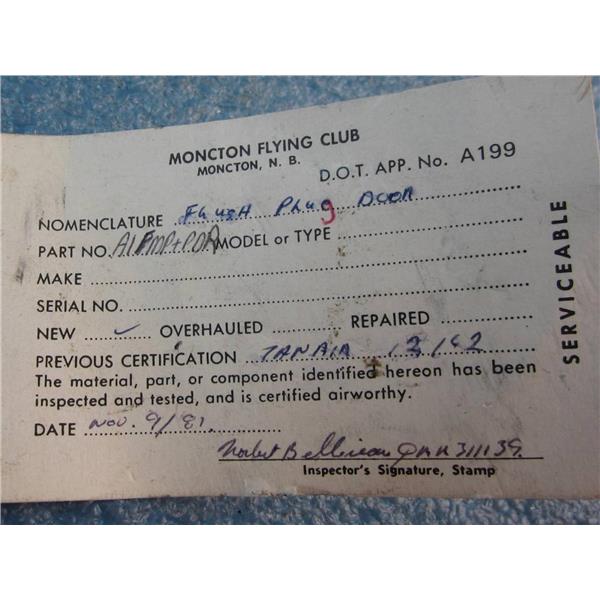 MONCTON FLYING CLUB
MONCTON, N. B.
D.O.T. APP. No. A199
NOMENCLATURE Flush Plug Door
PART NO. MODEL or TYPE
MAKE
SERIAL NO.
NEW ✓ OVERHAULED REPAIRED
PREVIOUS CERTIFICATION
The material, part, or component identified hereon has been
inspected and tested, and is certified airworthy.
DATE Nov. 9/81.
Inspector's Signature, Stamp
SERVICEABLE